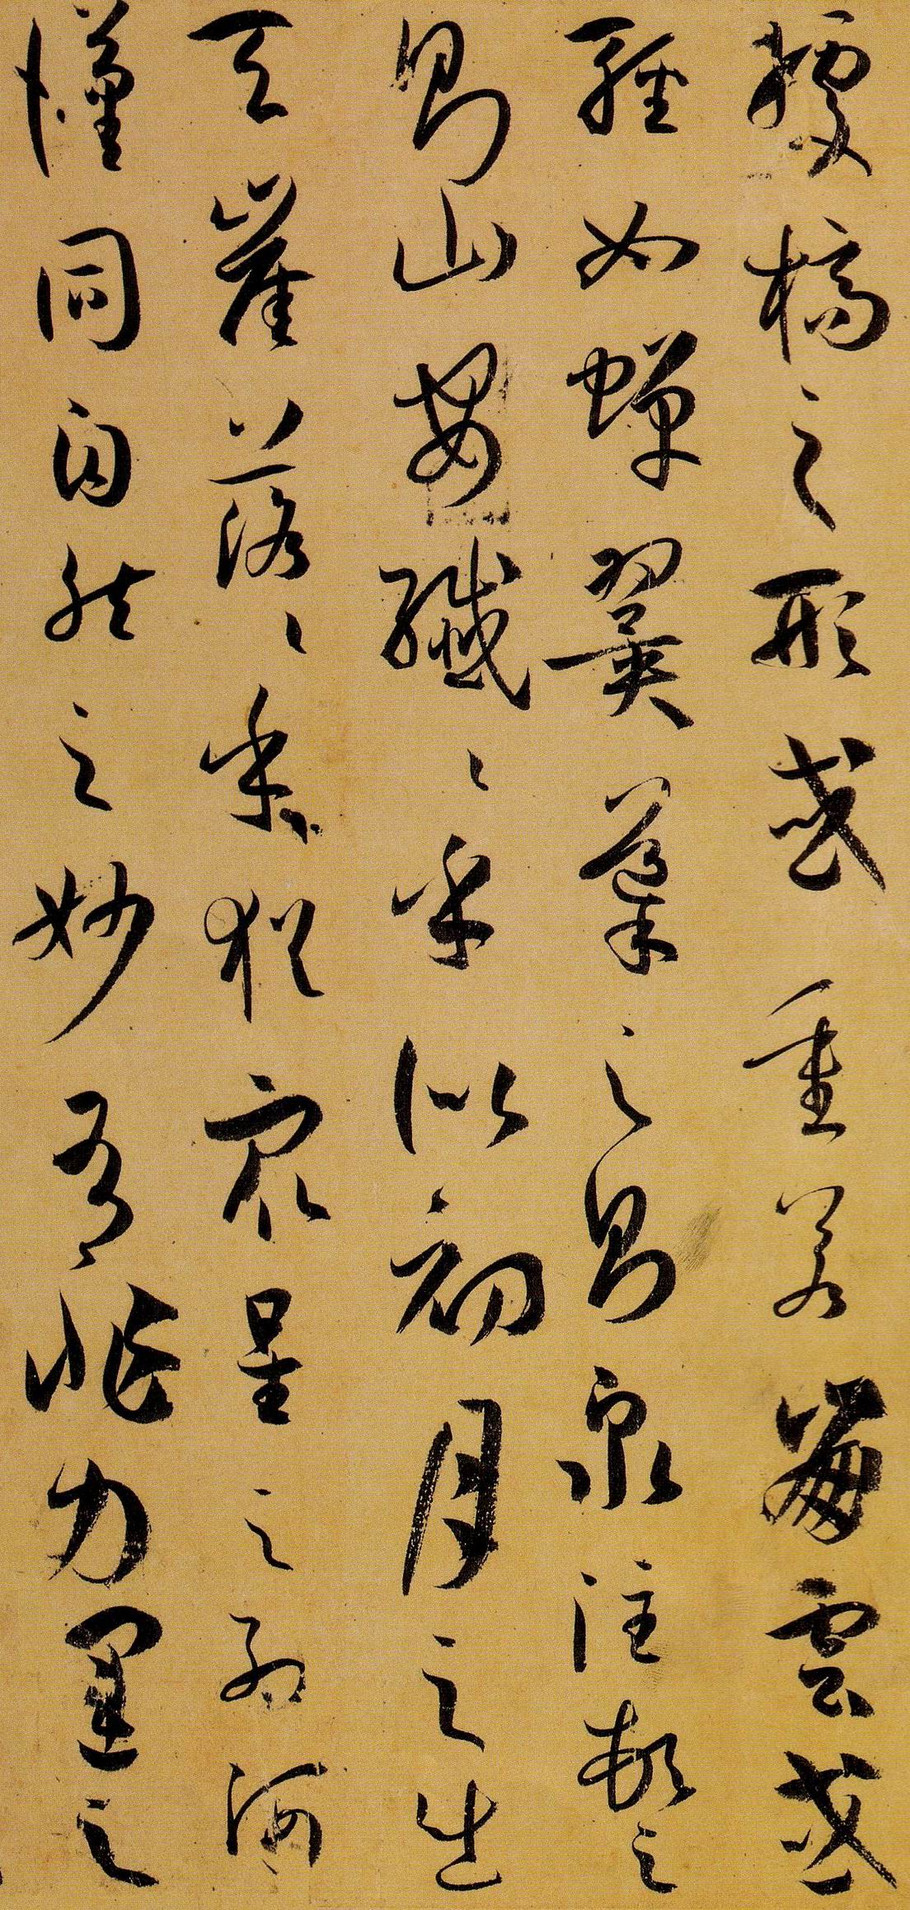 據槁之形或重若崩雲或
輕如蟬翼導之則泉注頓之
則山安纖〻乎似初月之出
天崖落〻乎猶衆星之列河
漢同自然之妙有非力運之